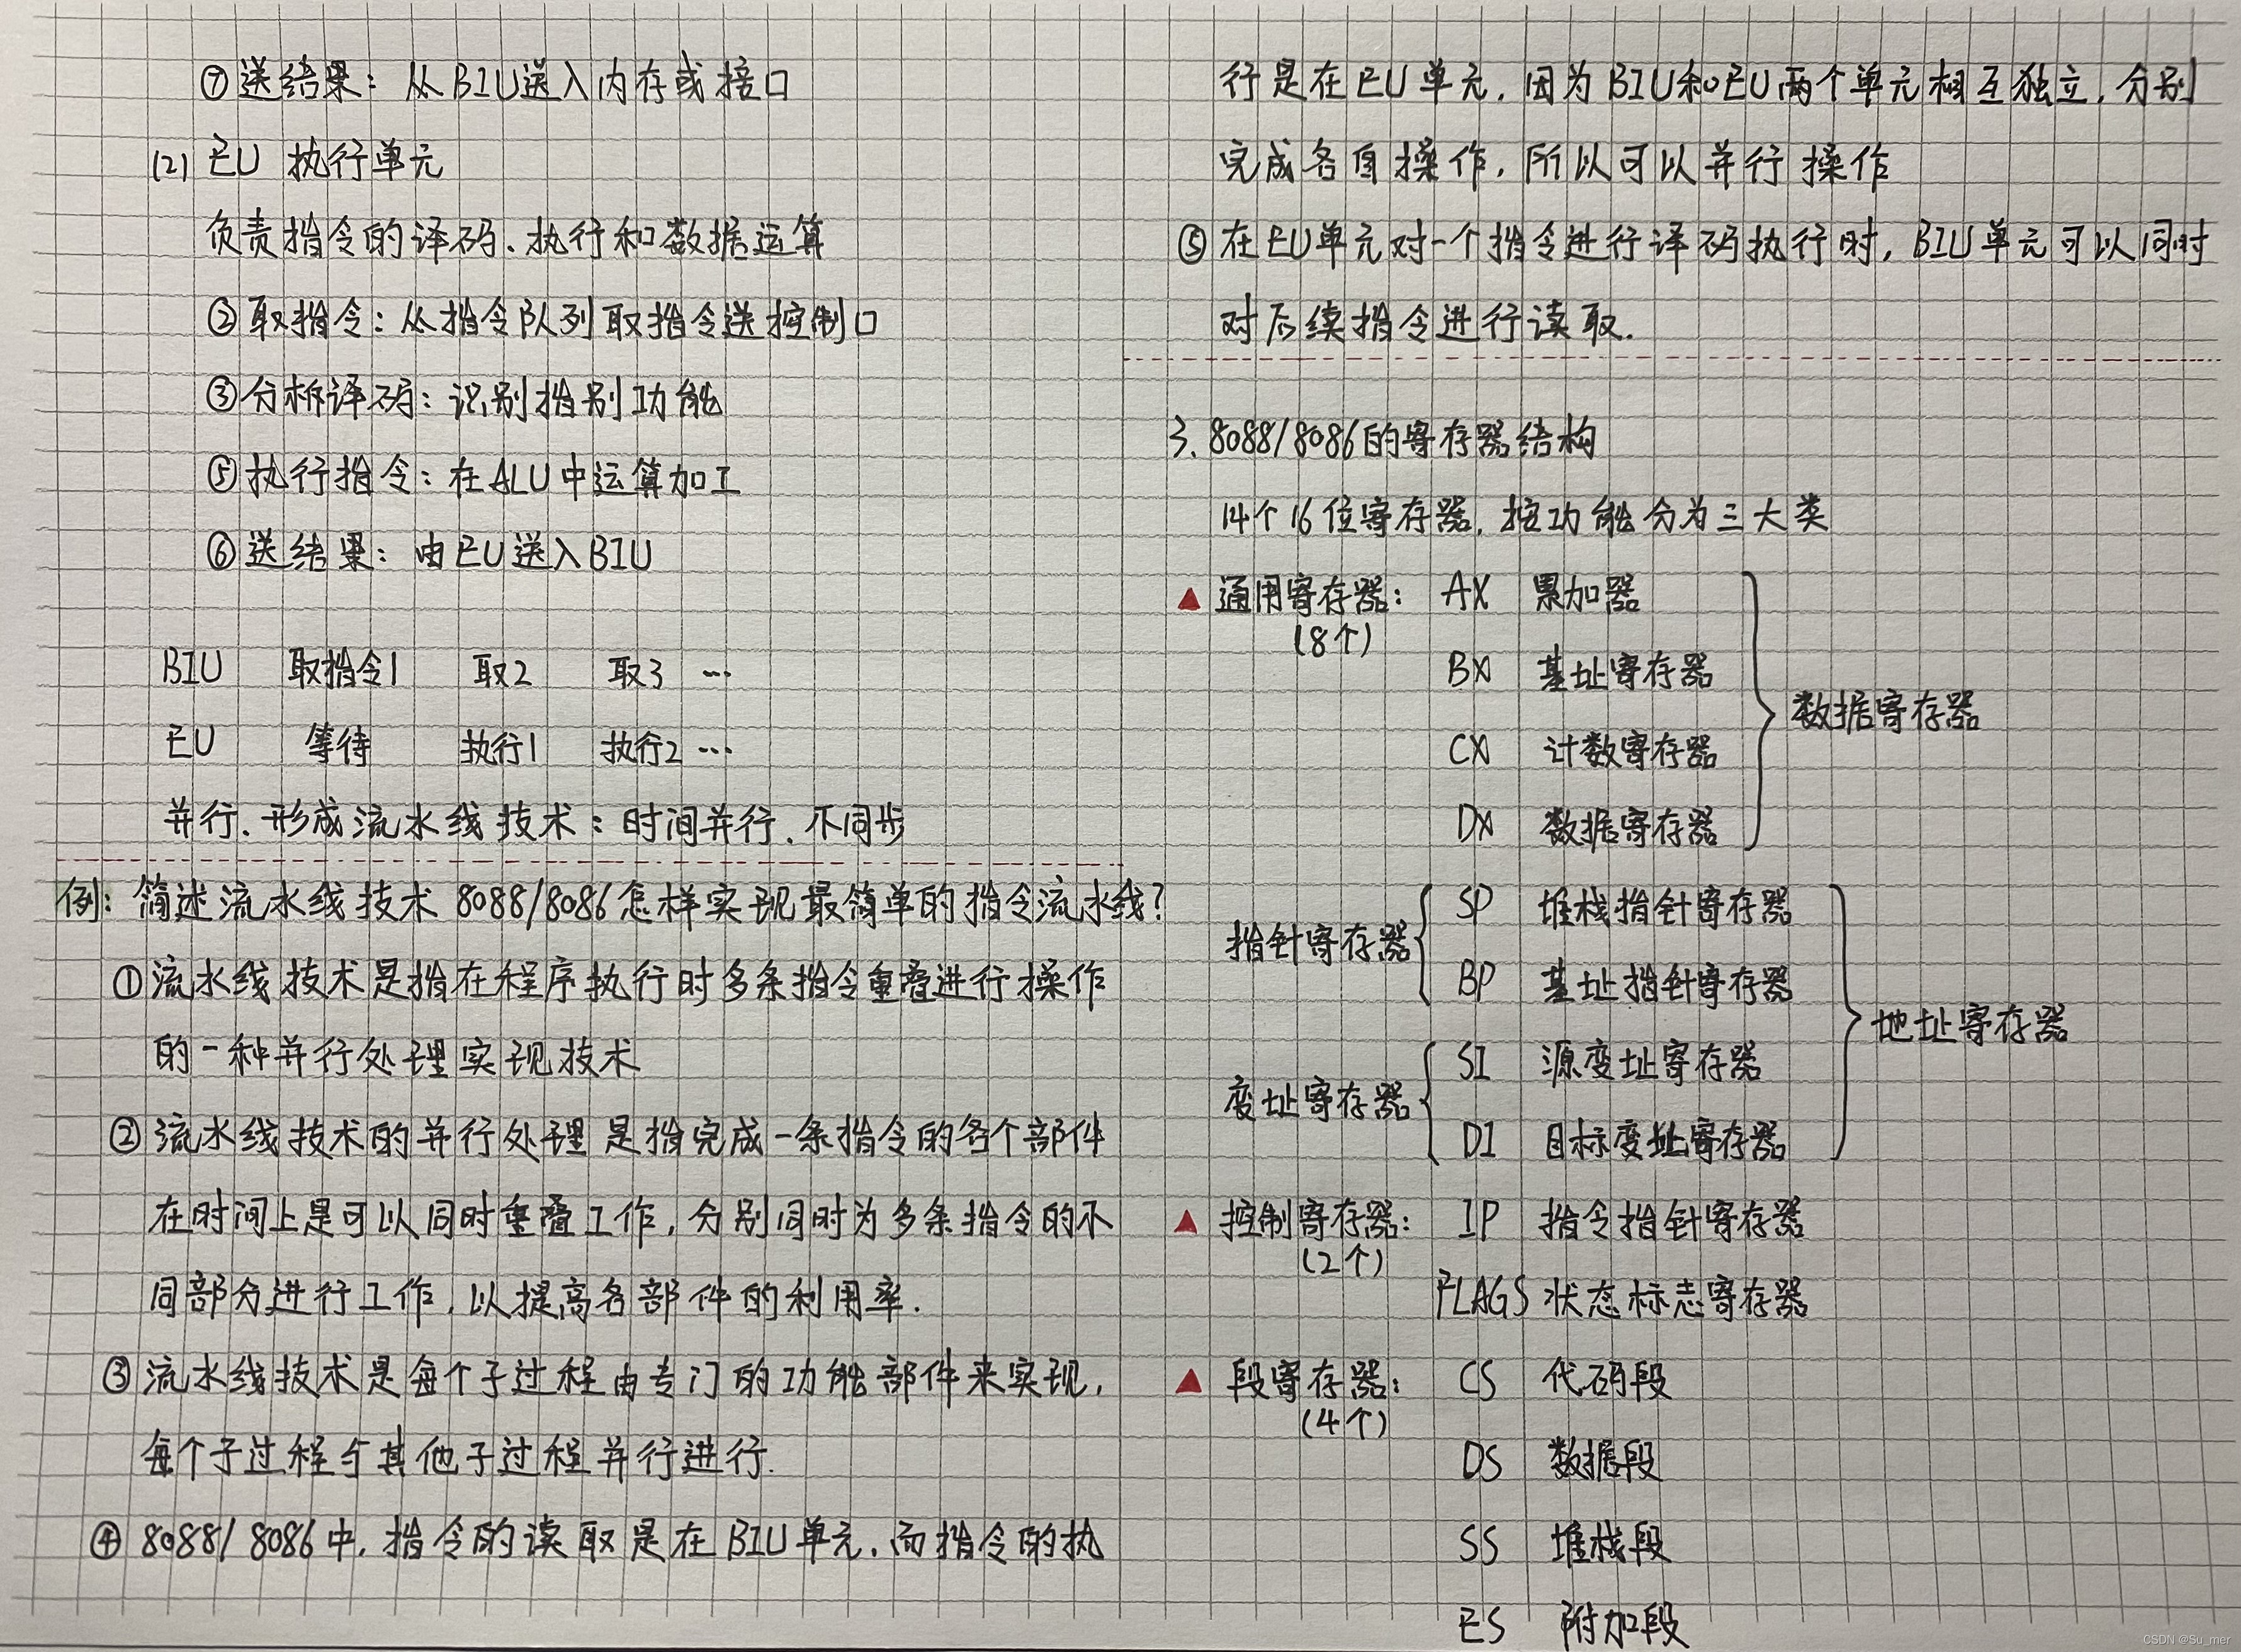 ⑦送结果：从BIU送入内存或接口
(2) EU 执行单元
负责指令的译码、执行和数据运算
②取指令：从指令队列取指令送控制口
③分析译码：识别指别功能
⑤执行指令：在ALU中运算加工
⑥送结果：由EU送入BIU
BIU 取指令1 取2 取3 …
EU 等待 执行1 执行2 …
并行、形成流水线技术：时间并行、不同步
例：简述流水线技术 8088/8086怎样实现最简单的指令流水线？
①流水线技术是指在程序执行时多条指令重叠进行操作
的一种并行处理实现技术
②流水线技术的并行处理是指完成一条指令的各个部件
在时间上是可以同时重叠工作，分别同时为多条指令的不
同部分进行工作，以提高各部件的利用率.
③流水线技术是每个子过程由专门的功能部件来实现，
每个子过程与其他子过程并行进行.
④8088/8086中，指令的读取是在BIU单元，而指令的执
行是在EU单元，因为BIU和EU两个单元相互独立，分别
完成各自操作，所以可以并行操作
⑤在EU单元对一个指令进行译码执行时，BIU单元可以同时
对后续指令进行读取.
3. 8088/8086的寄存器结构
14个16位寄存器，按功能分为三大类
▲ 通用寄存器： AX 累加器
(8个)
BX 基址寄存器
数据寄存器
CX 计数寄存器
DX 数据寄存器
SP 堆栈指针寄存器
指针寄存器
BP 基址指针寄存器
地址寄存器
SI 源变址寄存器
变址寄存器
DI 目标变址寄存器
▲ 控制寄存器： IP 指令指针寄存器
(2个)
FLAGS 状态标志寄存器
▲ 段寄存器： CS 代码段
(4个)
DS 数据段
SS 堆栈段
ES 附加段
CSDN @Su_mer